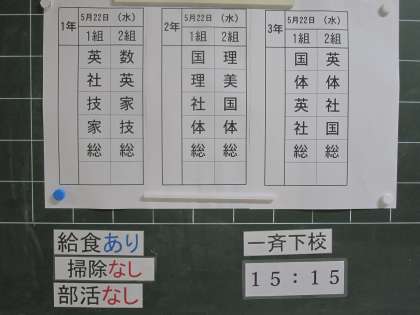 1年 5月22日 (水)
1組 2組
英 数
社 英
技 家
家 技
総 総
2年 5月22日 (水)
1組 2組
国 理
理 美
社 国
体 体
総 総
3年 5月22日 (水)
1組 2組
国 英
体 体
英 社
社 国
総 総
給食あり
掃除なし
部活なし
一斉下校
15:15